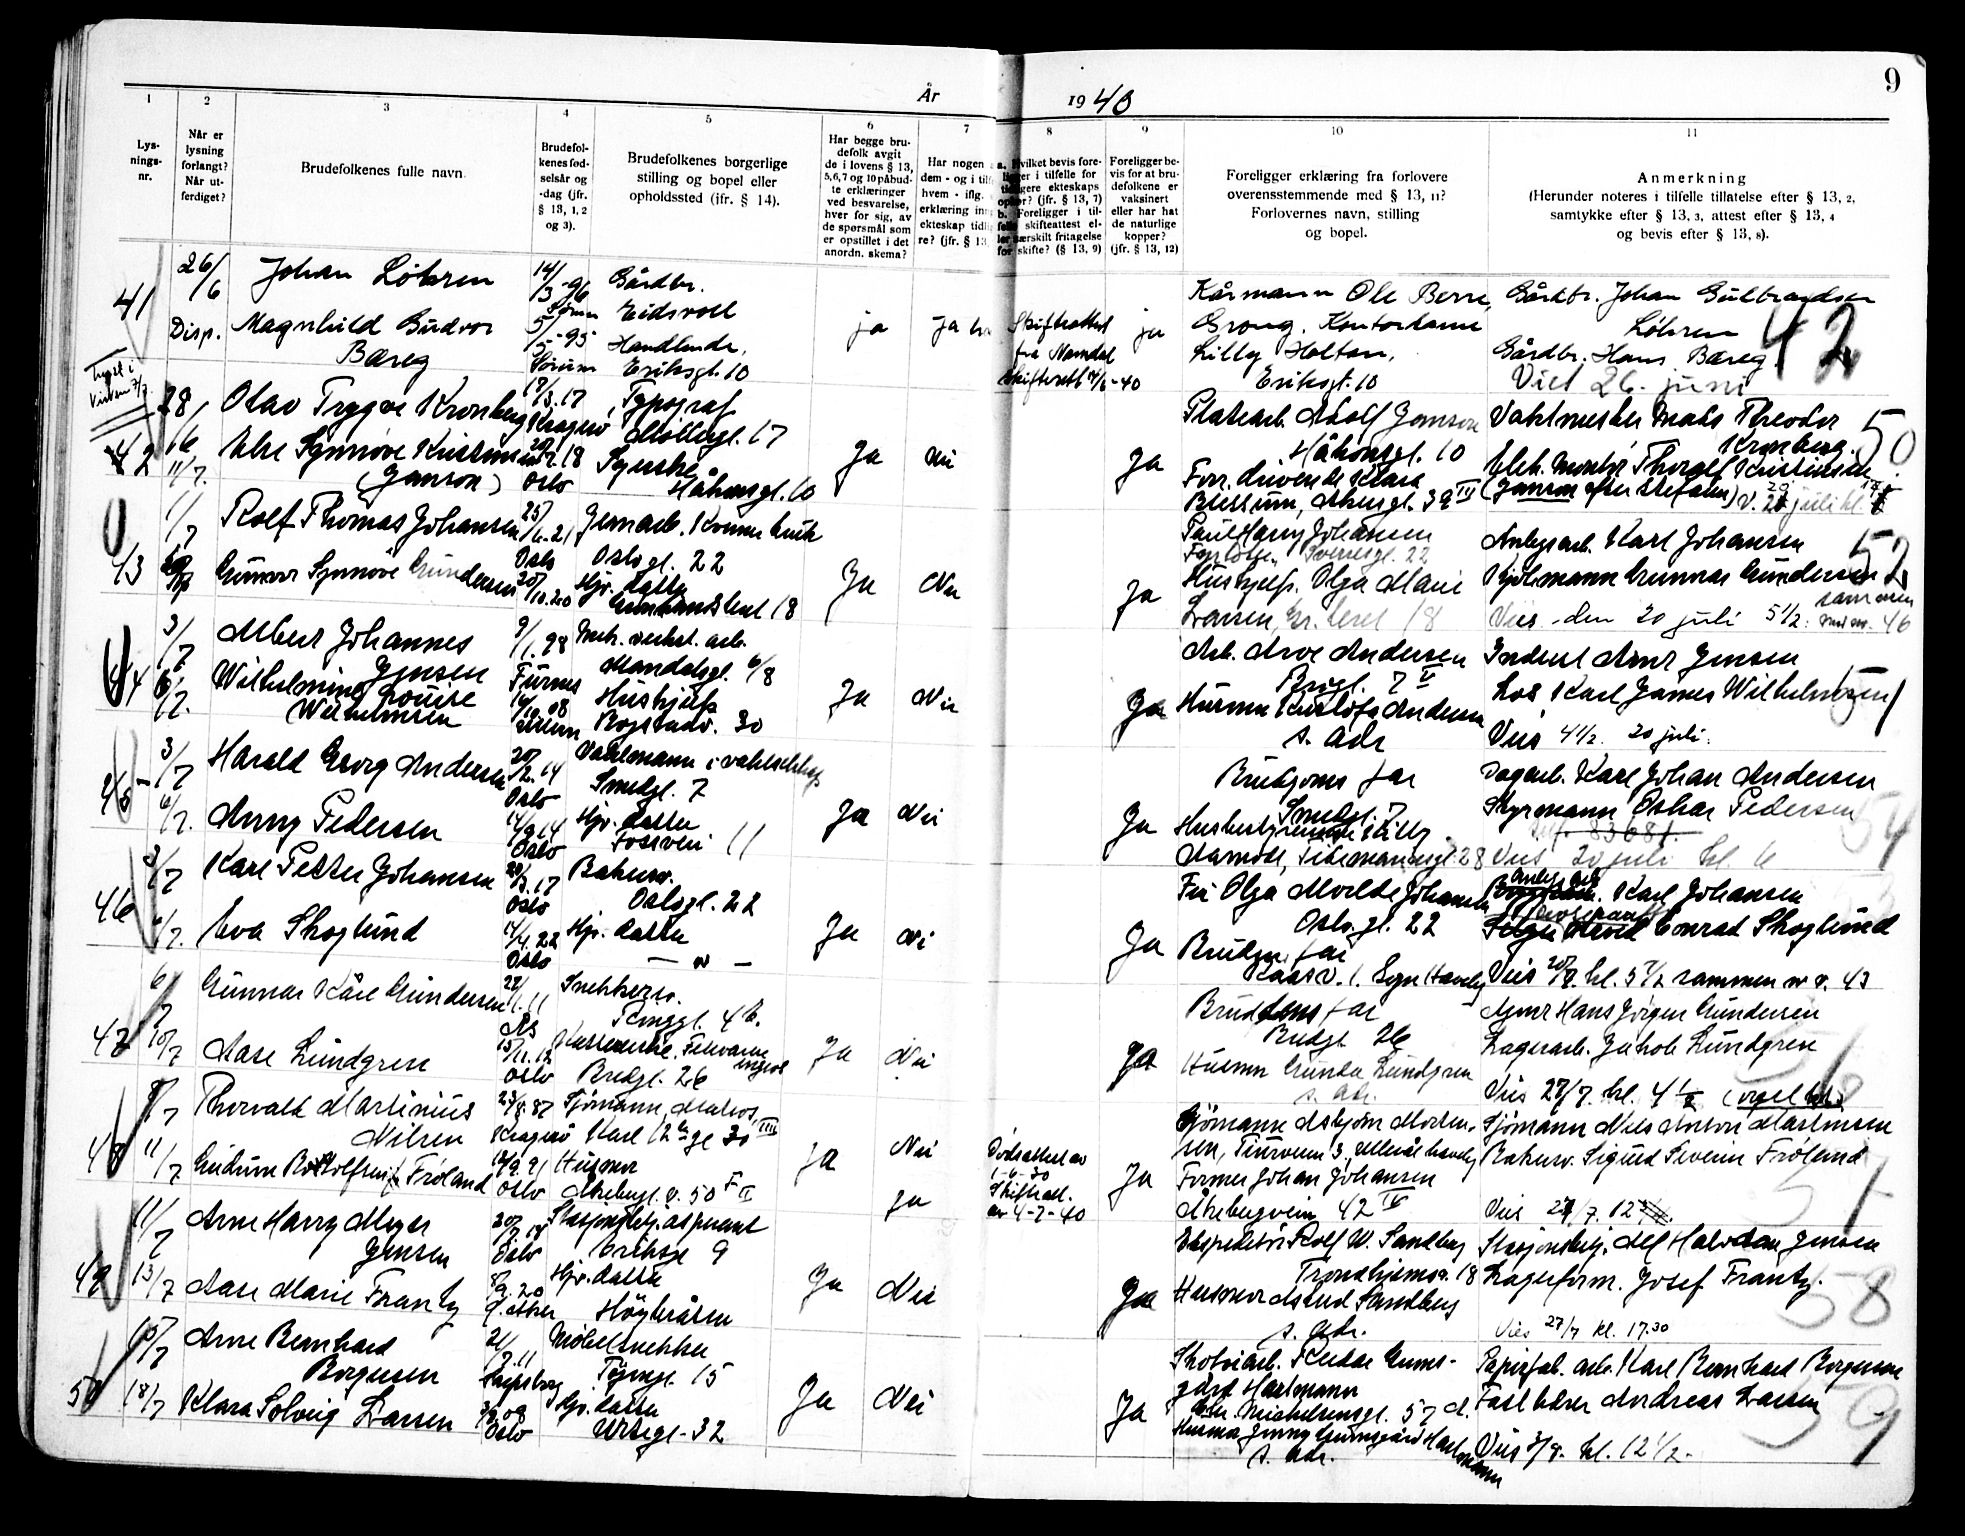 9
År 1940
1
2
3
4
5
6
7
8
9
10
11
Lys-
nings-
nr.
Når er
lysning
forlangt?
Når ut-
ferdiget?
Brudefolkenes fulle navn.
Brudefol-
kenes fød-
selsår og
-dag (jfr.
§ 13, 1, 2
og 3).
Brudefolkenes borgerlige
stilling og bopel eller
opholdssted (jfr. § 14).
Har begge bru-
defolk avgit
de i lovens § 13,
5,6,7 og 10 påbud-
te erklæringer
ved besvarelse,
hver for sig, av
de spørsmål som
er opstillet i det
anordn. skema?
Har nogen a
dem - og i tilf
hvem - iflg.
erklæring inn
ekteskap tidli
re? (jfr. § 13
a. Hvilket bevis fore-
ligger i tilfelle for
tidligere ekteskaps
ophør? (jfr. § 13, 7)
b. Foreligger i til-
felle skifteattest el-
ler særskilt fritagelse
for skifte? (§ 13, 9)
Foreligger be-
vis for at bru-
defolkene er
vaksinert
eller har hat
de naturlige
kopper?
(jfr. § 13, 12)
Foreligger erklæring fra forlovere
overensstemmende med § 13, 11?
Forlovernes navn, stilling
og bopel.
Anmerkning
(Herunder noteres i tilfelle tillatelse efter § 13, 2,
samtykke efter § 13, 3, attest efter § 13, 4
og bevis efter § 13, 8).
41
26/6
Disp.
Johan Löhren
Magnhild Gudvor
Bæreg
14/3-96
5/5-95
Gårdbr.
Eidsvoll
Handlende,
Eriksgt. 10
ja
ja
Skifteattest
fra Namdal
skifterett 4/6-40
ja
Kårmann Ole Berre,
Grong. Kontordame
Lilly Holtan,
Eriksgt. 10
Gårdbr. Johan Gulbrandsen
Löhren
Gårdbr. Hans Bæreg.
Viet 26. juni
42
42
28/6
11/7.
Olav Trygve Kronberg
Else Synnöve Kristinsen
(Janson)
17/3.17
Kragerö
Oslo
Typograf
Möllergt. 17
Syerske
Håkonsgt. 10
Ja
Nei
Ja
Platearb. Adolf Janson
Håkonsgt. 10
Forr. drivende Klara
Blessum, Akersgt. 39 IV
Vaktmester Mads Theodor
Kronberg.
Elek. Montör Thoralf Kristinsen
(Janson efter stefaren) V. 20 juli kl.
50
43
1/7
Rolf Thomas Johansen
Gunvor Synnöve Gundersen
25/6.21
Oslo
20/10.20
Jernarb. Kværner bruk
Oslogt. 22
Hjv. datter
Grönlandsleret 18
Ja
Nei
Ja
Paul Harry Johansen
Sverresgt. 22
Hushjelp. Olga Marie
Larsen, Gr. leret 18
Anlegsarb. Karl Johansen
Kjölmann Gunnar Gundersen
Vies den 20 juli 5 1/2: sammen med nr. 46
52
44
3/7
6/7.
Albert Johannes
Jensen
Wilhelmine Louise
Wilhelmsen
9/1.98
Furnes
Mek. verkst. arb.
Mandalsgt. 6/8
Hushjelp
Bogstadv. 30
Ja
Nei
Ja
Arb. Arve Andersen
Husmor Kristofa Andersen
s. adr
Inderst Arnt Jensen
Los Karl James Wilhelmsen
Vies 4 1/2. 20 juli.
51
45
3/7
6/7.
Harald Georg Andersen
Anny Pedersen
20/2.14
Oslo
14/9.14
Oslo
Vaktmann i vaktselskap
Smedgt. 7
Hjv. datter
Fossveien 11
Ja
Nei
Ja
Brudgoms far
Smedgt. 7
Husbestyrerinde Lilly
Aamodt, Tidemannsgt. 28
Dagarb. Karl Johan Andersen
Styrmann Oskar Pedersen
Vies 20 juli kl. 6
54
46
3/7
6/7.
Karl Petter Johansen
Eva Skoglund
20/3.17
Oslo
14/4.22
Oslo
Bakersv.
Oslogt. 22
Hjv. datter
— " —
Ja
Nei
Ja
Fru Olga Alvilde Johansen
Oslogt. 22
Brudens far
Anlegsarb. Karl Johansen
Conrad Skoglund
Vies 20/7. kl. 5 1/2 sammen m. v. 43
47
6/7
10/7
Gunnar Kåre Gundersen
Aase Lundgren
22/1.11
Ås
15/11.12
Oslo
Snekkersv.
Ringgt. 4 b.
Bredgt. 26
Ja
Nei
Ja
Brudens far
Bredgt 26
Husmor Gunda Lundgren
s. adr.
Agent Hans Jörgen Gundersen
Lagerarb. Jakob Lundgren
Vies 27/7. kl. 4 1/2 (orgel bet.)
56
48
8/7
11/7
Thorvald Martinius
Nilsen
Gudrun f. Fröland
23/8.87
Kragerö
14/9.91
Oslo
Sjömann, Matros,
Karl 12tesgt 30 III
Husmor
Akebergv. 50 F II
Ja
Nei
Ja
Dödsattest av
1-6-30
Skifteatt.
av 4-7-40
Ja
Sjömann Asbjörn Morten-
sen, Tiurveien 3, Ullevål haveby
Former Johan Johansen
Åkebergveien 42 IV
Sjömann Nils Anton Martinsen
Bakersv. Sigurd Severin Fröland
Vies 27/7. 12
57
49
11/7
13/7
Arne Harry Meyer
Jensen
Aase Marie Frantz
Oslo
8/9.20
Ö. Aker
Stasjonsbetj. aspirant
Eriksgt 9
Hjv. datter
Höybråten
Ja
Nei
Ja
Ekspeditör Rolf W. Sandberg
Trondhjemsv. 18
Husmor Astrid Sandberg
s. adr.
Stasjonsbetj. Alf Halvdan Jensen
Lagerform. Josef Frantz.
Vies 27/7 kl. 17.30
58
50
15/7
18/7
Arne Bernhard
Borgersen
Klara Solveig Larsen
21/7.11
Sarpsborg
Oslo
Möbelsnekker
Töyengt. 15
Hjv. datter
Urtegt. 32
Ja
Nei
Ja
Skotöiarb. Reidar Gums-
gård Hartmann
Chr. Michelsensgt. 57 d.
Husmor Jenny Gumsgård Hartmann
s. adr.
Papirfab. arb. Karl Bernhard Borgersen
Andreas Larsen
Vies 3/8. kl. 12 1/2.
59